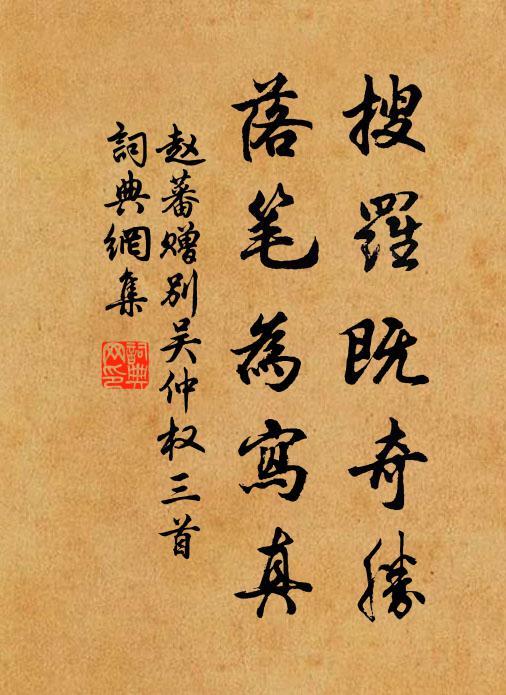 搜羅既奇勝
落笔為寫真
赵蕃赠别吴仲权三首
詞典網集
詞典网印